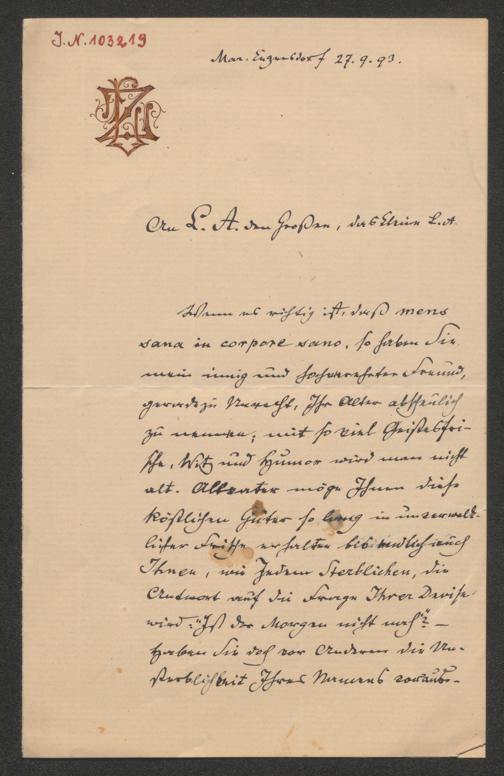 J.N. 103219
Mar. Enzersdorf 27.9.93.
An L. A. den Großen, das kleine L. A.
Wenn es richtig ist, daß mens
sana in corpore sano, so haben Sie,
mein innig und hochverehrter Freund,
geradezu Unrecht, Ihr Alter abscheulich
zu nennen; mit so viel Geistesfri-
sche, Witz und Humor wird man nicht
alt. Allvater möge Ihnen diese
köstlichen Güter so lang in unverwelk-
licher Frische erhalten bis endlich auch
Ihnen, wie Jedem Sterblichen, die
Antwort auf die Frage Ihrer Devise
wird: "Ist der Morgen nicht nah"? –
Haben Sie doch vor Anderen die Un-
sterblichkeit Ihres Namens voraus-